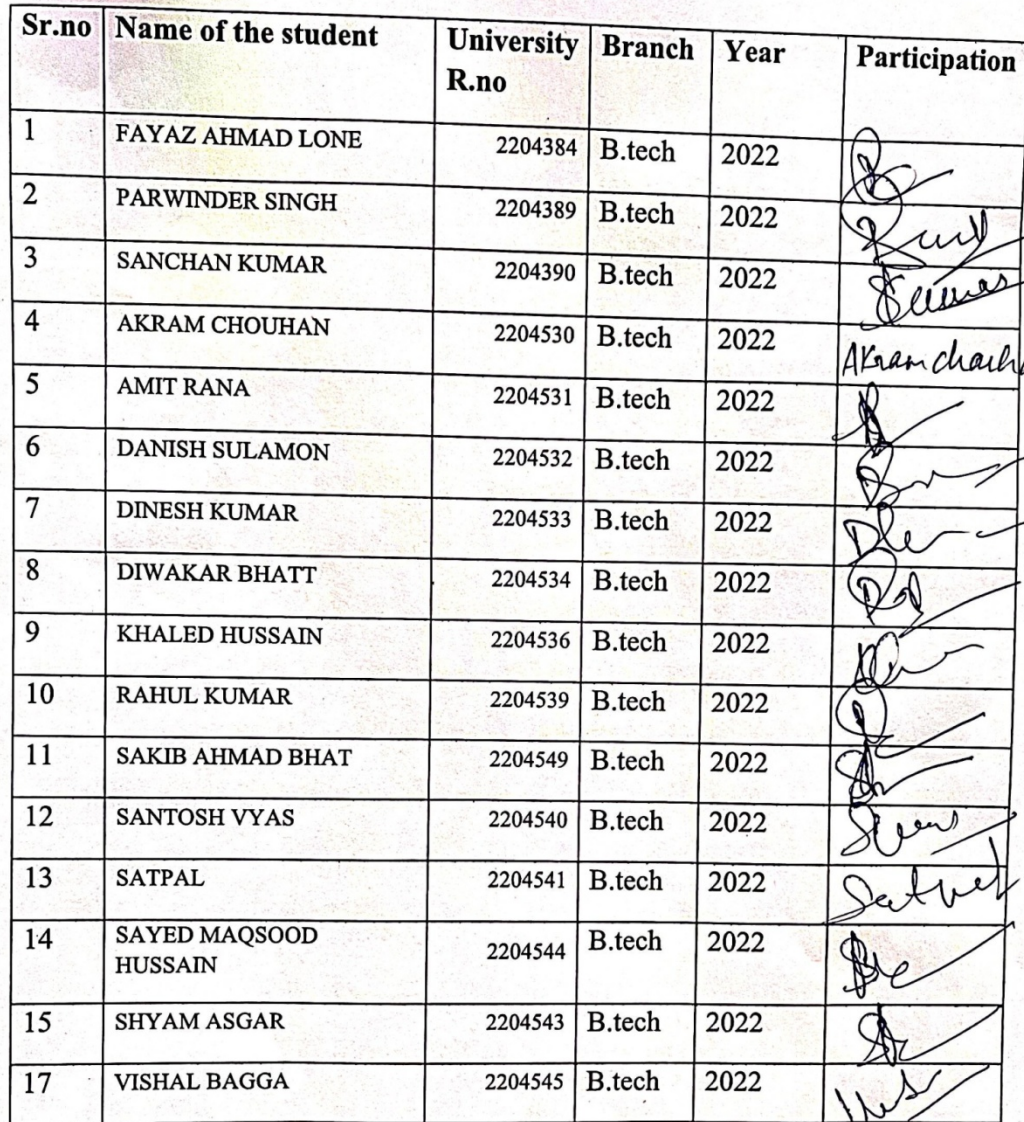 Sr.no Name of the student University R.no Branch Year Participation
1 FAYAZ AHMAD LONE 2204384 B.tech 2022
2 PARWINDER SINGH 2204389 B.tech 2022
3 SANCHAN KUMAR 2204390 B.tech 2022
4 AKRAM CHOUHAN 2204530 B.tech 2022 Akram
5 AMIT RANA 2204531 B.tech 2022
6 DANISH SULAMON 2204532 B.tech 2022
7 DINESH KUMAR 2204533 B.tech 2022
8 DIWAKAR BHATT 2204534 B.tech 2022
9 KHALED HUSSAIN 2204536 B.tech 2022
10 RAHUL KUMAR 2204539 B.tech 2022
11 SAKIB AHMAD BHAT 2204549 B.tech 2022
12 SANTOSH VYAS 2204540 B.tech 2022
13 SATPAL 2204541 B.tech 2022
14 SAYED MAQSOOD HUSSAIN 2204544 B.tech 2022
15 SHYAM ASGAR 2204543 B.tech 2022
17 VISHAL BAGGA 2204545 B.tech 2022